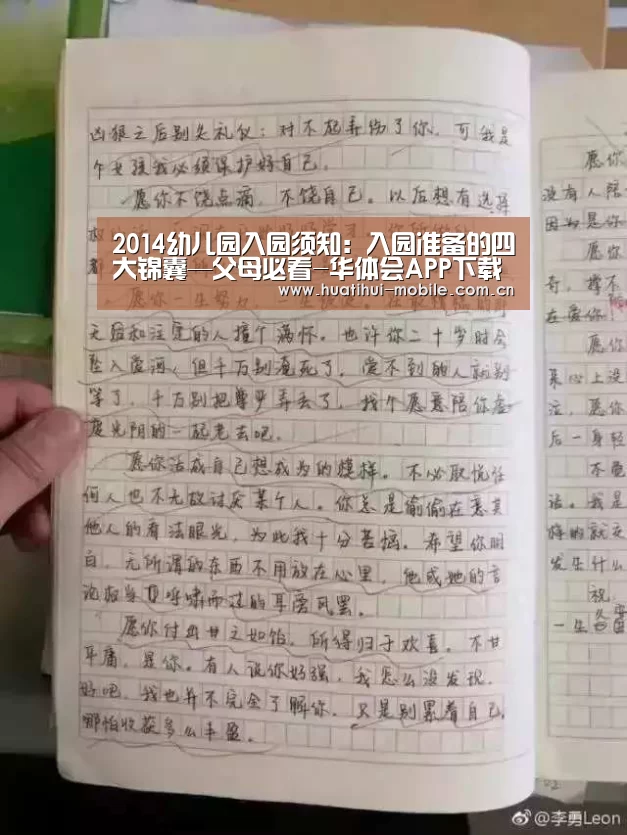 凶狠之后别失礼仪：对不起弄伤了你，可我是
个女孩我必须保护好自己。
愿你不饶点痛，不饶自己。以后想有选择
2014幼儿园入园须知：入园准备的四
大锦囊—父母必看-华体会APP下载
www.huatihui-mobile.com.cn
愿你一生努力，一生
无后和注定的人撞个满怀。也许你二十岁时会
坠入爱河，但千万别淹死了，爱不到的人就别
等了，千万别把尊严弄丢了，找个愿意陪你虚
度光阴的一起老去吧。
愿你活成自己想成为的模样。不必取悦任
何人也不无故讨厌某个人。你总是偷偷在意其
他人的看法眼光，为此我十分苦恼。希望你明
白，无所谓的东西不用放在心里，他或她的言
论权当是呼啸而过的耳旁风罢。
愿你付出甘之如饴，所得归于欢喜。不甘
平庸，是你。有人说你好强，我怎么没发现，
好吧，我也并不完全了解你，只是别累着自己，
哪怕收获多么丰盈。
愿你
没有人陪
因为是你
愿
奇，撑不
在爱你
愿你
某心上没
注，愿你
后一身轻
不要
话。我是
悔的就交
发生什么
祝，
一生
@李勇Leon